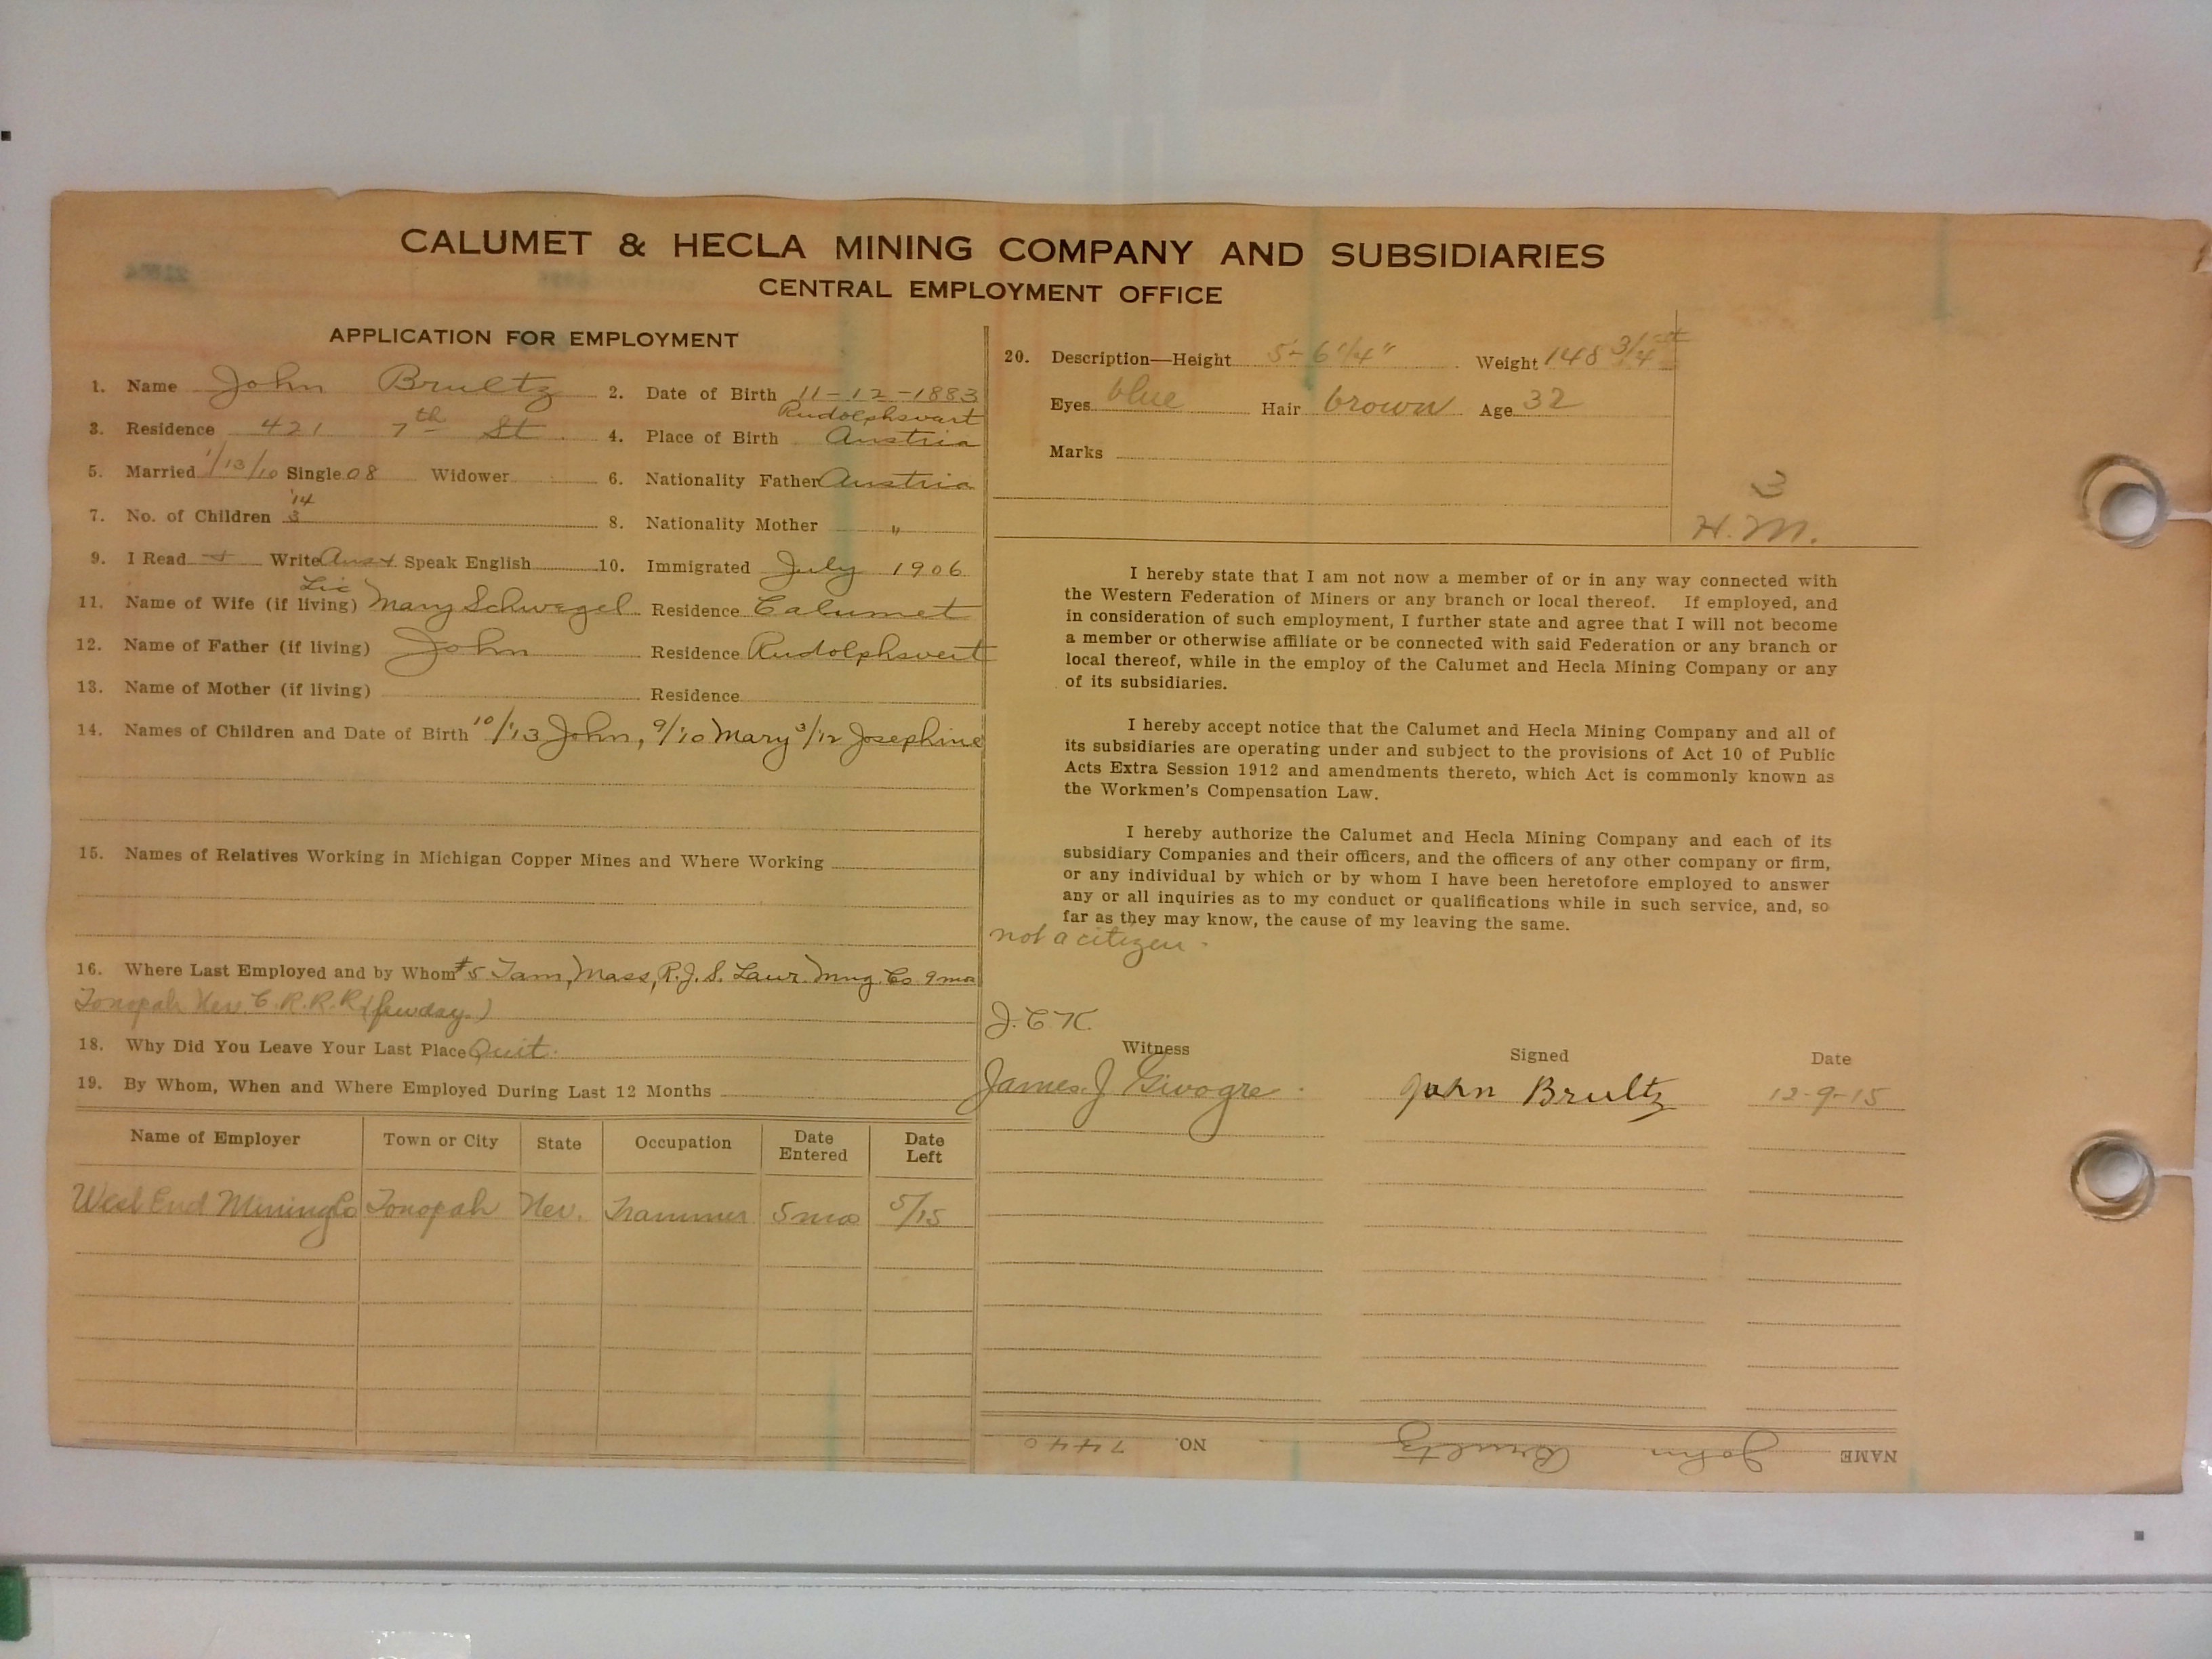 CALUMET & HECLA MINING COMPANY AND SUBSIDIARIES
CENTRAL EMPLOYMENT OFFICE
APPLICATION FOR EMPLOYMENT
1. Name John Brultz 2. Date of Birth 11-12-1883
3. Residence 421 7th St 4. Place of Birth Rudolphswart Austria
5. Married 1/13/10 Single 08 Widower 6. Nationality Father Austria
7. No. of Children '14 3 8. Nationality Mother "
9. I Read Write Aust Speak English 10. Immigrated July 1906
11. Name of Wife (if living) Mary Schwegel Residence Calumet
12. Name of Father (if living) John Residence Rudolphswert
13. Name of Mother (if living) Residence
14. Names of Children and Date of Birth 10/'13 John, 9/'10 Mary 3/12 Josephine
15. Names of Relatives Working in Michigan Copper Mines and Where Working
16. Where Last Employed and by Whom #5 Tam, Mass, R.J.S. Laur. Mng. Co 9 mos
Tonopah Nev. C.R.R.R (few day.)
18. Why Did You Leave Your Last Place Quit.
19. By Whom, When and Where Employed During Last 12 Months
Name of Employer Town or City State Occupation Date Entered Date Left
West End Mining Co Tonopah Nev. Trammer 5 mos 5/15
20. Description—Height 5'-6 1/4" Weight 148 3/4
Eyes blue Hair brown Age 32
Marks
3
H.M.
I hereby state that I am not now a member of or in any way connected with
the Western Federation of Miners or any branch or local thereof. If employed, and
in consideration of such employment, I further state and agree that I will not become
a member or otherwise affiliate or be connected with said Federation or any branch or
local thereof, while in the employ of the Calumet and Hecla Mining Company or any
of its subsidiaries.
I hereby accept notice that the Calumet and Hecla Mining Company and all of
its subsidiaries are operating under and subject to the provisions of Act 10 of Public
Acts Extra Session 1912 and amendments thereto, which Act is commonly known as
the Workmen's Compensation Law.
I hereby authorize the Calumet and Hecla Mining Company and each of its
subsidiary Companies and their officers, and the officers of any other company or firm,
or any individual by which or by whom I have been heretofore employed to answer
any or all inquiries as to my conduct or qualifications while in such service, and, so
far as they may know, the cause of my leaving the same.
not a citizen.
J.C.K.
Witness Signed Date
James J Givogre John Brultz 12-9-15
NAME John Brultz NO. 7440